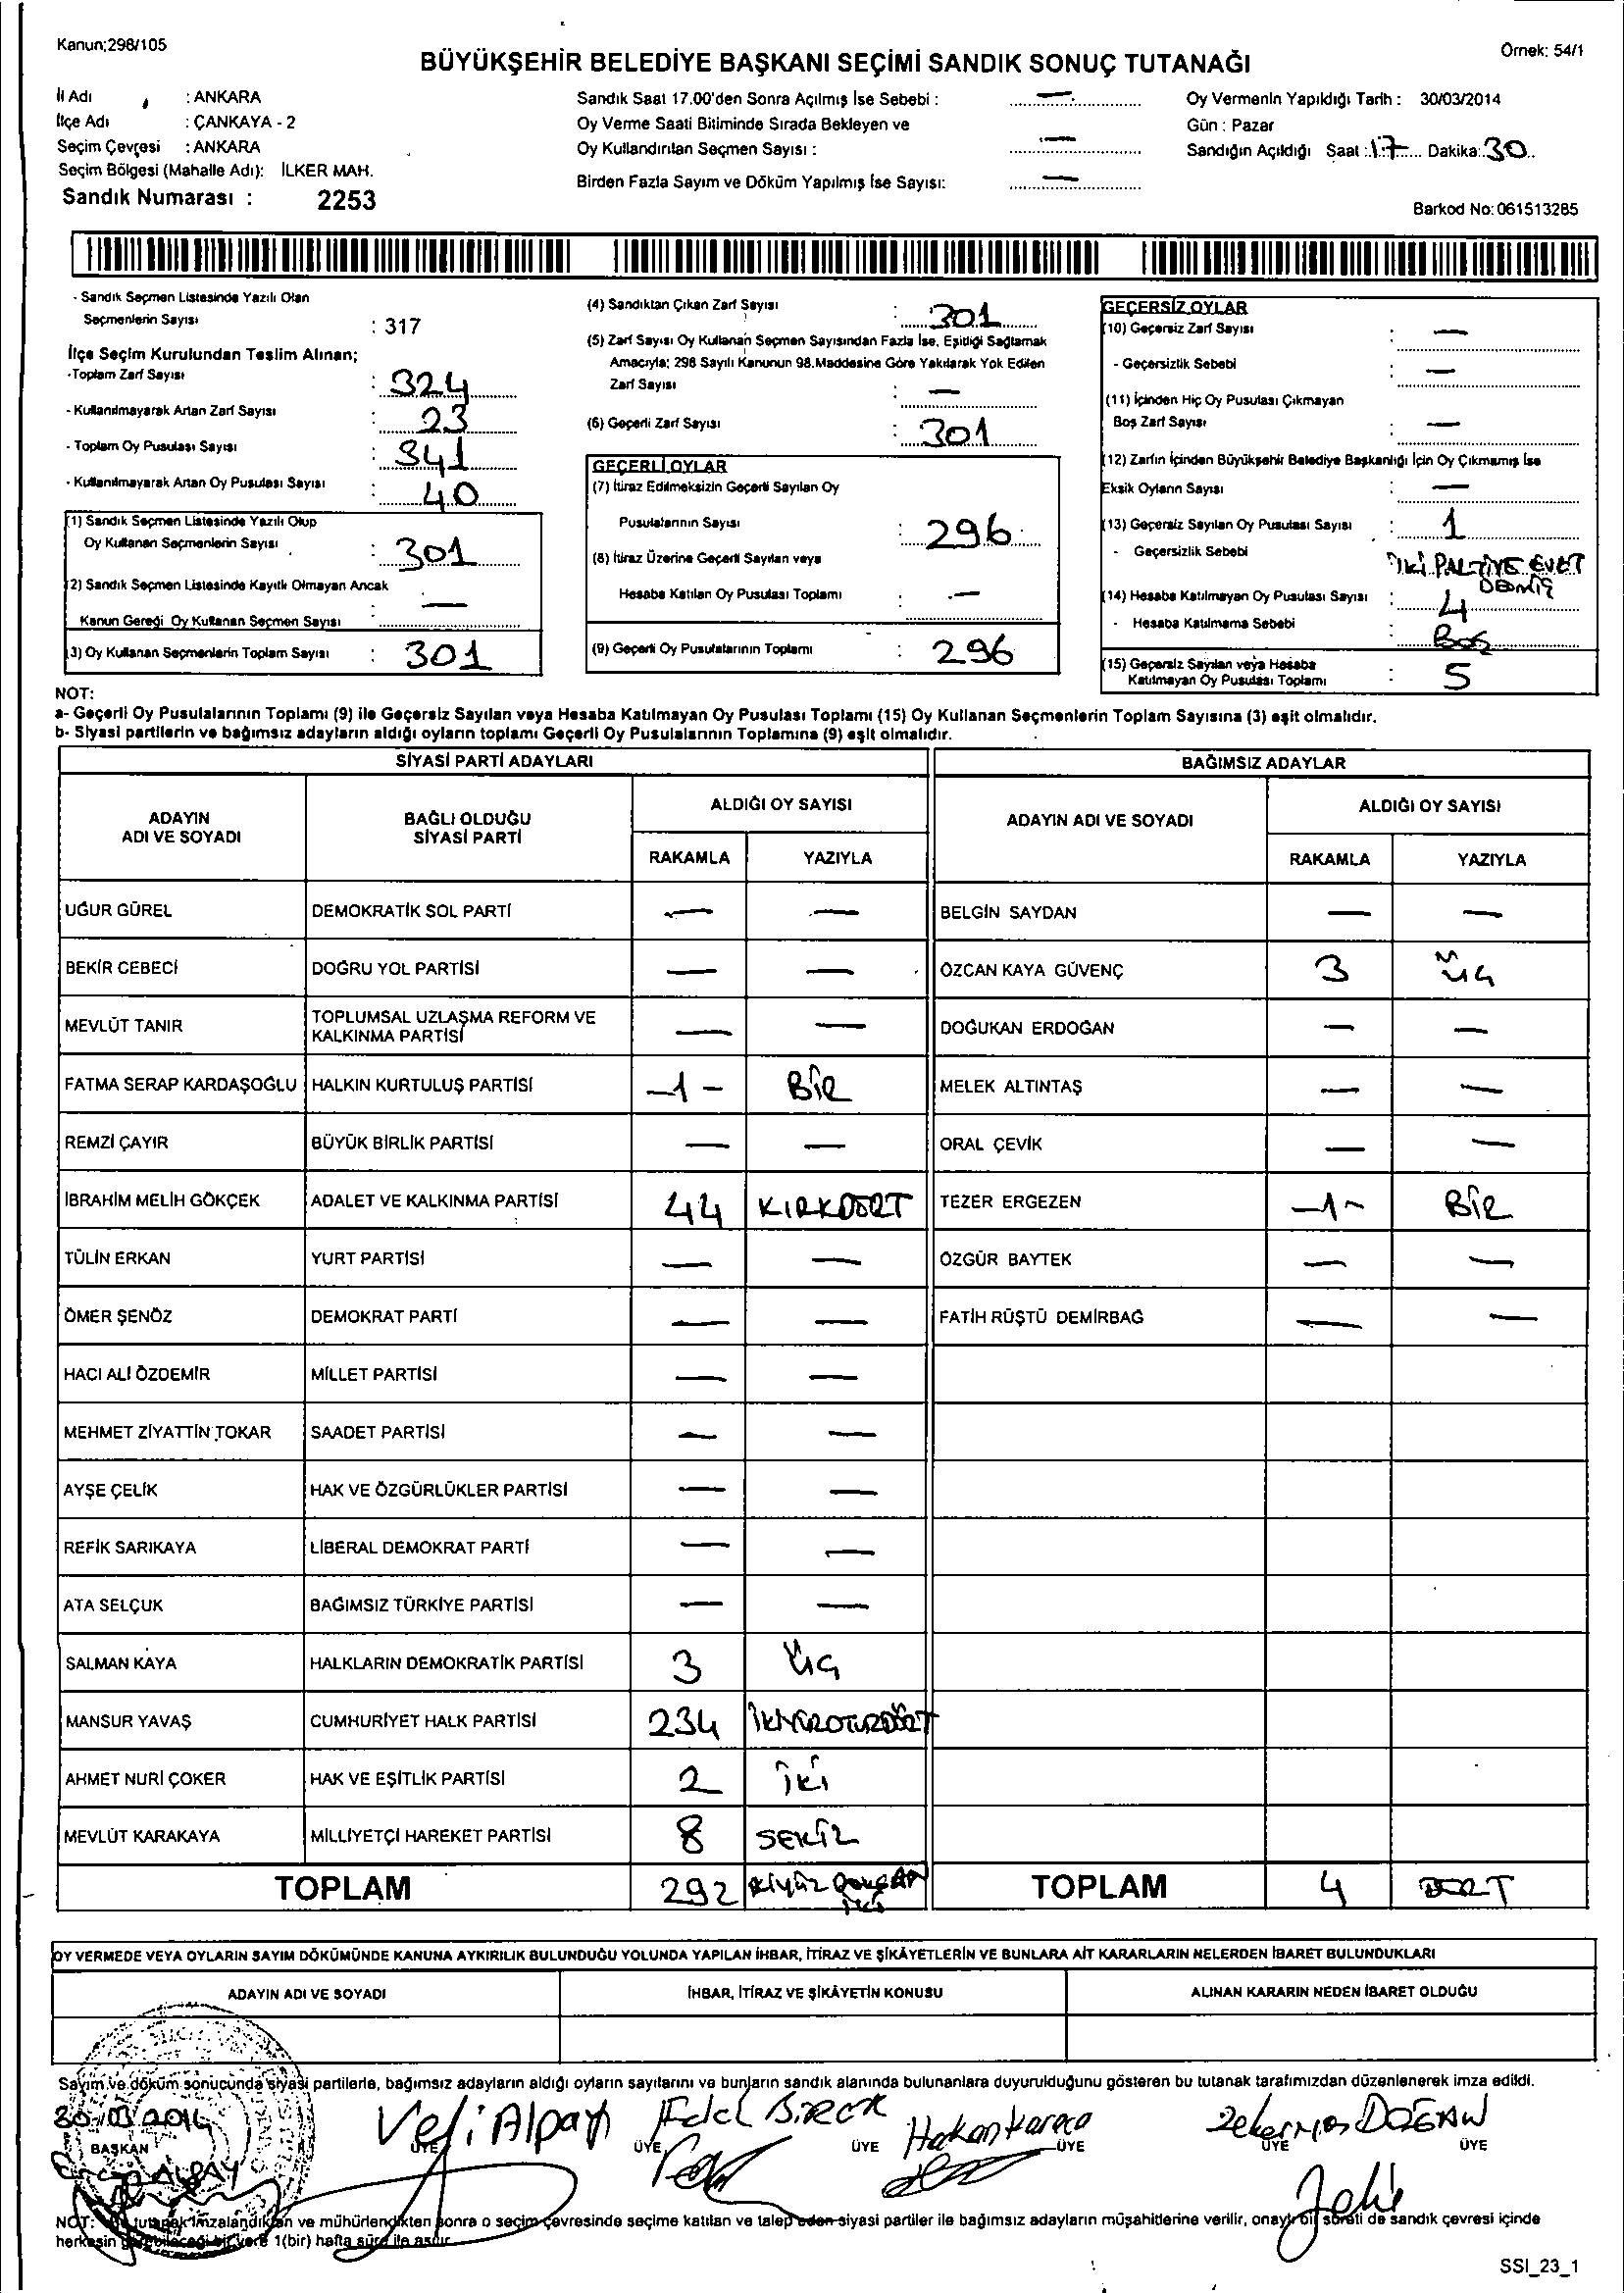 Kanun;298/105
Örnek: 54/1
BÜYÜKŞEHİR BELEDİYE BAŞKANI SEÇİMİ SANDIK SONUÇ TUTANAĞI
İl Adı : ANKARA
İlçe Adı : ÇANKAYA - 2
Seçim Çevresi : ANKARA
Seçim Bölgesi (Mahalle Adı): İLKER MAH.
Sandık Numarası : 2253
Sandık Saat 17.00'den Sonra Açılmış İse Sebebi : —
Oy Verme Saati Bitiminde Sırada Bekleyen ve
Oy Kullandırılan Seçmen Sayısı : —
Birden Fazla Sayım ve Döküm Yapılmış İse Sayısı: —
Oy Vermenin Yapıldığı Tarih : 30/03/2014
Gün : Pazar
Sandığın Açıldığı Saat : 17 Dakika: 30
Barkod No: 061513285
- Sandık Seçmen Listesinde Yazılı Olan
Seçmenlerin Sayısı : 317
İlçe Seçim Kurulundan Teslim Alınan;
-Toplam Zarf Sayısı : 324
- Kullanılmayarak Artan Zarf Sayısı : 23
- Toplam Oy Pusulası Sayısı : 341
- Kullanılmayarak Artan Oy Pusulası Sayısı : 40
(1) Sandık Seçmen Listesinde Yazılı Olup
Oy Kullanan Seçmenlerin Sayısı : 301
(2) Sandık Seçmen Listesinde Kayıtlı Olmayan Ancak
Kanun Gereği Oy Kullanan Seçmen Sayısı : —
(3) Oy Kullanan Seçmenlerin Toplam Sayısı : 301
(4) Sandıktan Çıkan Zarf Sayısı : 301
(5) Zarf Sayısı Oy Kullanan Seçmen Sayısından Fazla İse, Eşitliği Sağlamak
Amacıyla; 298 Sayılı Kanunun 98.Maddesine Göre Yakılarak Yok Edilen
Zarf Sayısı : —
(6) Geçerli Zarf Sayısı : 301
GEÇERLİ OYLAR
(7) İtiraz Edilmeksizin Geçerli Sayılan Oy
Pusulalarının Sayısı : 296
(8) İtiraz Üzerine Geçerli Sayılan veya
Hesaba Katılan Oy Pusulası Toplamı : —
(9) Geçerli Oy Pusulalarının Toplamı : 296
GEÇERSİZ OYLAR
(10) Geçersiz Zarf Sayısı : —
- Geçersizlik Sebebi : —
(11) İçinden Hiç Oy Pusulası Çıkmayan
Boş Zarf Sayısı : —
(12) Zarfın İçinden Büyükşehir Belediye Başkanlığı İçin Oy Çıkmamış İse
Eksik Oyların Sayısı : —
(13) Geçersiz Sayılan Oy Pusulası Sayısı : 1
- Geçersizlik Sebebi İKİ PALTİYE EVET
DEMİŞ
(14) Hesaba Katılmayan Oy Pusulası Sayısı : 4
- Hesaba Katılmama Sebebi : Boş
(15) Geçersiz Sayılan veya Hesaba
Katılmayan Oy Pusulası Toplamı : 5
NOT:
a- Geçerli Oy Pusulalarının Toplamı (9) ile Geçersiz Sayılan veya Hesaba Katılmayan Oy Pusulası Toplamı (15) Oy Kullanan Seçmenlerin Toplam Sayısına (3) eşit olmalıdır.
b- Siyasi partilerin ve bağımsız adayların aldığı oyların toplamı Geçerli Oy Pusulalarının Toplamına (9) eşit olmalıdır.
SİYASİ PARTİ ADAYLARI
ADAYIN ADI VE SOYADI
BAĞLI OLDUĞU SİYASİ PARTİ
ALDIĞI OY SAYISI
RAKAMLA YAZIYLA
UĞUR GÜREL DEMOKRATİK SOL PARTİ — —
BEKİR CEBECİ DOĞRU YOL PARTİSİ — —
MEVLÜT TANIR TOPLUMSAL UZLAŞMA REFORM VE KALKINMA PARTİSİ — —
FATMA SERAP KARDAŞOĞLU HALKIN KURTULUŞ PARTİSİ –1– BİR
REMZİ ÇAYIR BÜYÜK BİRLİK PARTİSİ — —
İBRAHİM MELİH GÖKÇEK ADALET VE KALKINMA PARTİSİ 44 KIRKDÖRT
TÜLİN ERKAN YURT PARTİSİ — —
ÖMER ŞENÖZ DEMOKRAT PARTİ — —
HACI ALİ ÖZDEMİR MİLLET PARTİSİ — —
MEHMET ZİYATTİN TOKAR SAADET PARTİSİ — —
AYŞE ÇELİK HAK VE ÖZGÜRLÜKLER PARTİSİ — —
REFİK SARIKAYA LİBERAL DEMOKRAT PARTİ — —
ATA SELÇUK BAĞIMSIZ TÜRKİYE PARTİSİ — —
SALMAN KAYA HALKLARIN DEMOKRATİK PARTİSİ 3 ÜÇ
MANSUR YAVAŞ CUMHURİYET HALK PARTİSİ 234
AHMET NURİ ÇOKER HAK VE EŞİTLİK PARTİSİ 2 İKİ
MEVLÜT KARAKAYA MİLLİYETÇİ HAREKET PARTİSİ 8 SEKİZ
TOPLAM 292 İKİYÜZ DOKSAN İKİ
BAĞIMSIZ ADAYLAR
ADAYIN ADI VE SOYADI
ALDIĞI OY SAYISI
RAKAMLA YAZIYLA
BELGİN SAYDAN — —
ÖZCAN KAYA GÜVENÇ 3 ÜÇ
DOĞUKAN ERDOĞAN — —
MELEK ALTINTAŞ — —
ORAL ÇEVİK — —
TEZER ERGEZEN –1– BİR
ÖZGÜR BAYTEK — —
FATİH RÜŞTÜ DEMİRBAĞ — —
TOPLAM 4 DÖRT
OY VERMEDE VEYA OYLARIN SAYIM DÖKÜMÜNDE KANUNA AYKIRILIK BULUNDUĞU YOLUNDA YAPILAN İHBAR, İTİRAZ VE ŞİKÂYETLERİN VE BUNLARA AİT KARARLARIN NELERDEN İBARET BULUNDUKLARI
ADAYIN ADI VE SOYADI İHBAR, İTİRAZ VE ŞİKÂYETİN KONUSU ALINAN KARARIN NEDEN İBARET OLDUĞU
Sayım ve döküm sonucunda siyasi partilerle, bağımsız adayların aldığı oyların sayılarını ve bunların sandık alanında bulunanlara duyurulduğunu gösteren bu tutanak tarafımızdan düzenlenerek imza edildi.
30/03/2014 Veli Alpay Hakan Karaca Zekeriya DOĞAN
BAŞKAN ÜYE ÜYE ÜYE ÜYE ÜYE ÜYE
ALPAY
NOT: Bu tutanak imzalandıktan ve mühürlendikten sonra o seçim çevresinde seçime katılan ve talep eden siyasi partiler ile bağımsız adayların müşahitlerine verilir, onaylı bir sureti de sandık çevresi içinde
herkesin görebileceği bir yere 1(bir) hafta süre ile asılır.
SSI_23_1